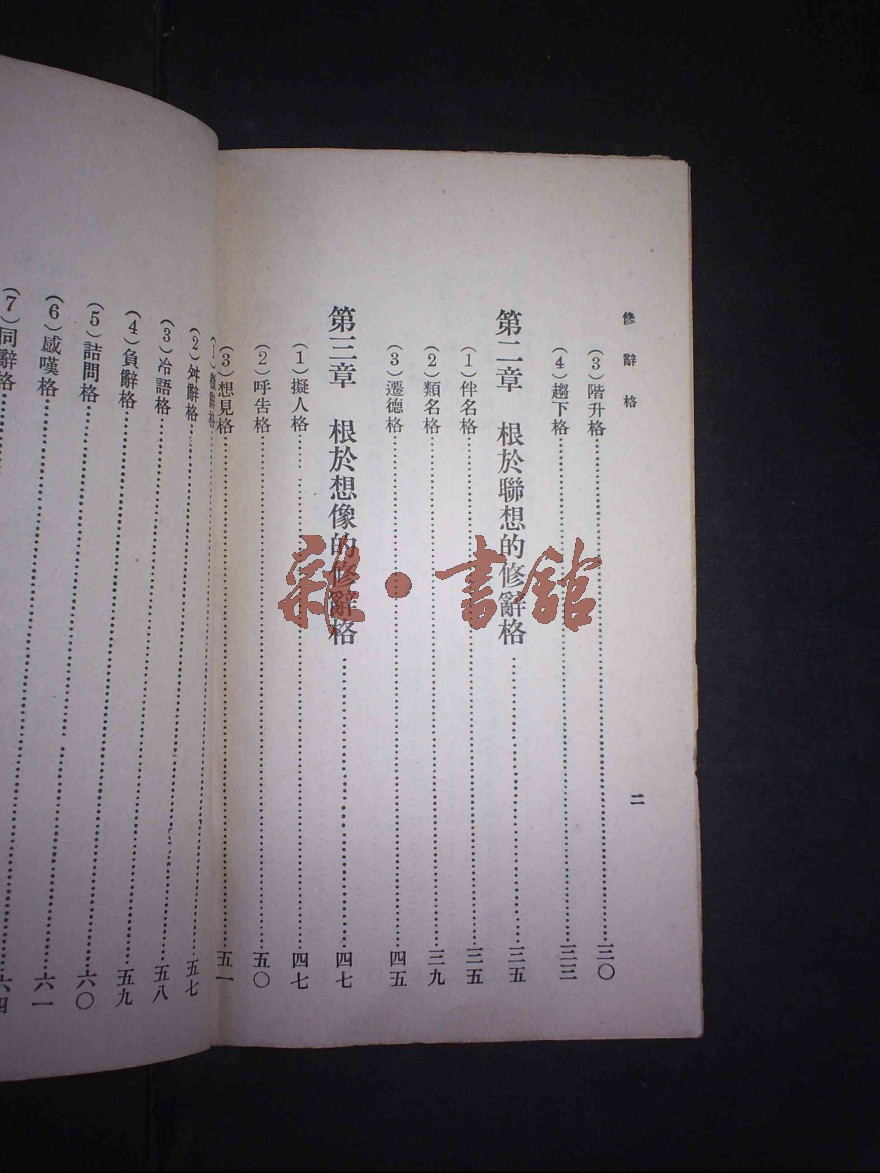 修辭格
二
(3)階升格……三〇
(4)趨下格……三三
第二章　根於聯想的修辭格……三五
(1)伴名格……三五
(2)類名格……三九
(3)遷德格……四五
第三章　根於想像的修辭格……四七
(1)擬人格……四七
(2)呼告格……五〇
(3)想見格……五一
(1)
(2)舛辭格……五七
(3)冷語格……五八
(4)負辭格……五九
(5)詰問格……六〇
(6)感嘆格……六一
(7)同辭格……六四
雜·書館